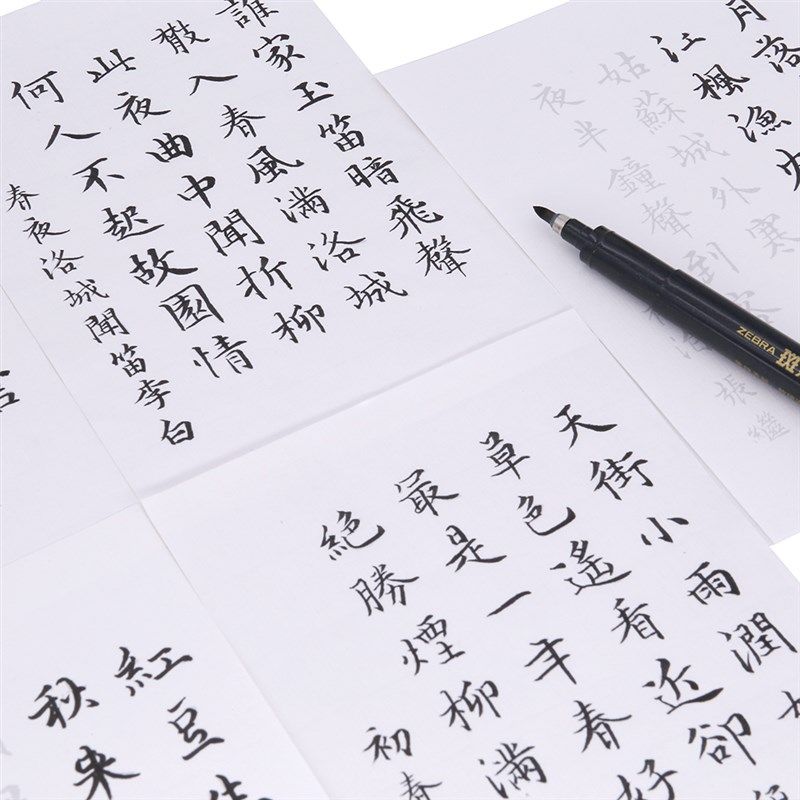 誰家玉笛暗飛聲
散入春風滿洛城
此夜曲中聞折柳
何人不起故園情
春夜洛城聞笛李白
月落
江楓漁火
姑蘇城外寒
夜半鐘聲到
張繼
ZEBRA 斑
天街小雨潤
草色遙看近卻
最是一年春好
絕勝煙柳滿
初春
紅豆
秋來